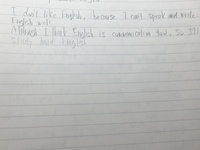 I don't like English, because I can't speak and write
English well.
Although I think English is communication tool, so I'll
study hard English